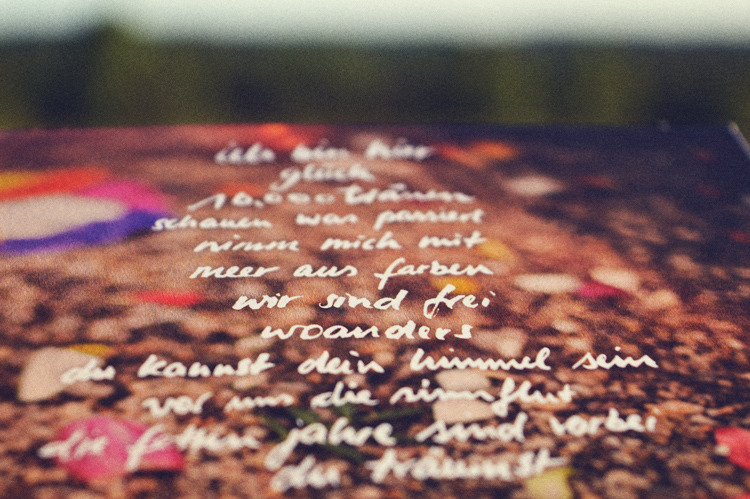 ich bin hier
glück
10.000 tränen
schauen was passiert
nimm mich mit
meer aus farben
wir sind frei
woanders
du kannst dein himmel sein
vor uns die sinnflut
die fetten jahre sind vorbei
du träumst